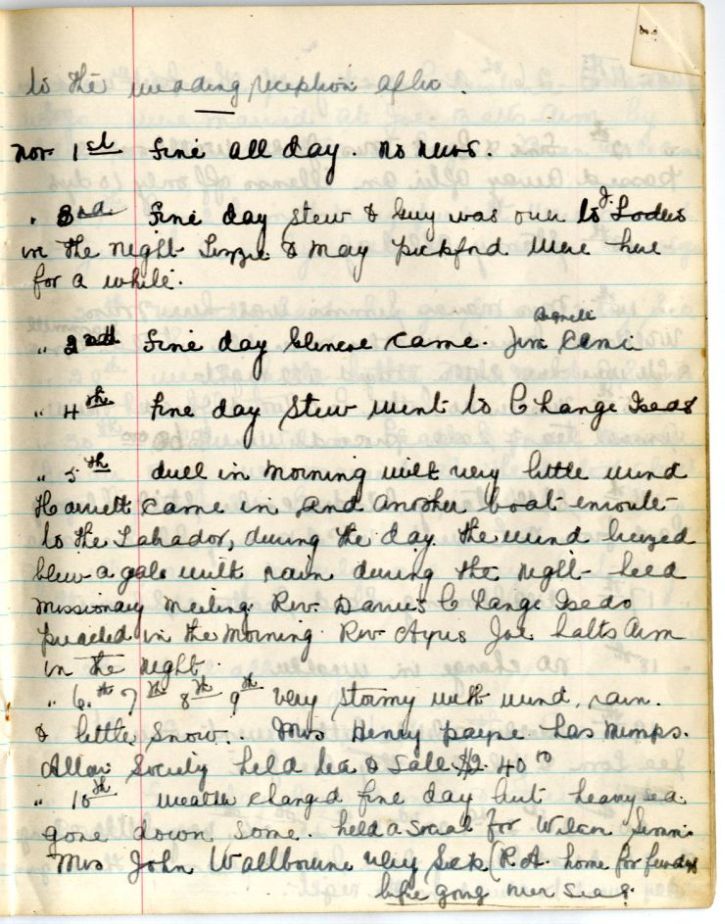 to the wedding reception after.
Nov. 1st fine all day. no news.
" 3rd fine day Stew & Guy was over to J. Loders
in the night Lizzie & May Pickford were here
for a while.
" 2nd fine day came. Jim
" 4th fine day Stew went to Change Iseds
" 5th dull in morning with very little wind
Harriett came in and another boat enroute
to the Labrador, during the day. the wind
blew a gale with rain during the night held
Missionary Meeting. Rev. Davies Change Iseds
preached in the Morning Rev. Ayres Joe batts Arm
in the night.
" 6th 7th 8th 9th very stormy with wind, rain.
& little, snow. Mrs Henry payne has Mumps.
Society held tea & Sale $2.40
" 10th weather changed fine day but heavy sea.
gone down some. held a social for
Mrs John Wallbourne very Sick (R.A. home for few days
before going over seas.